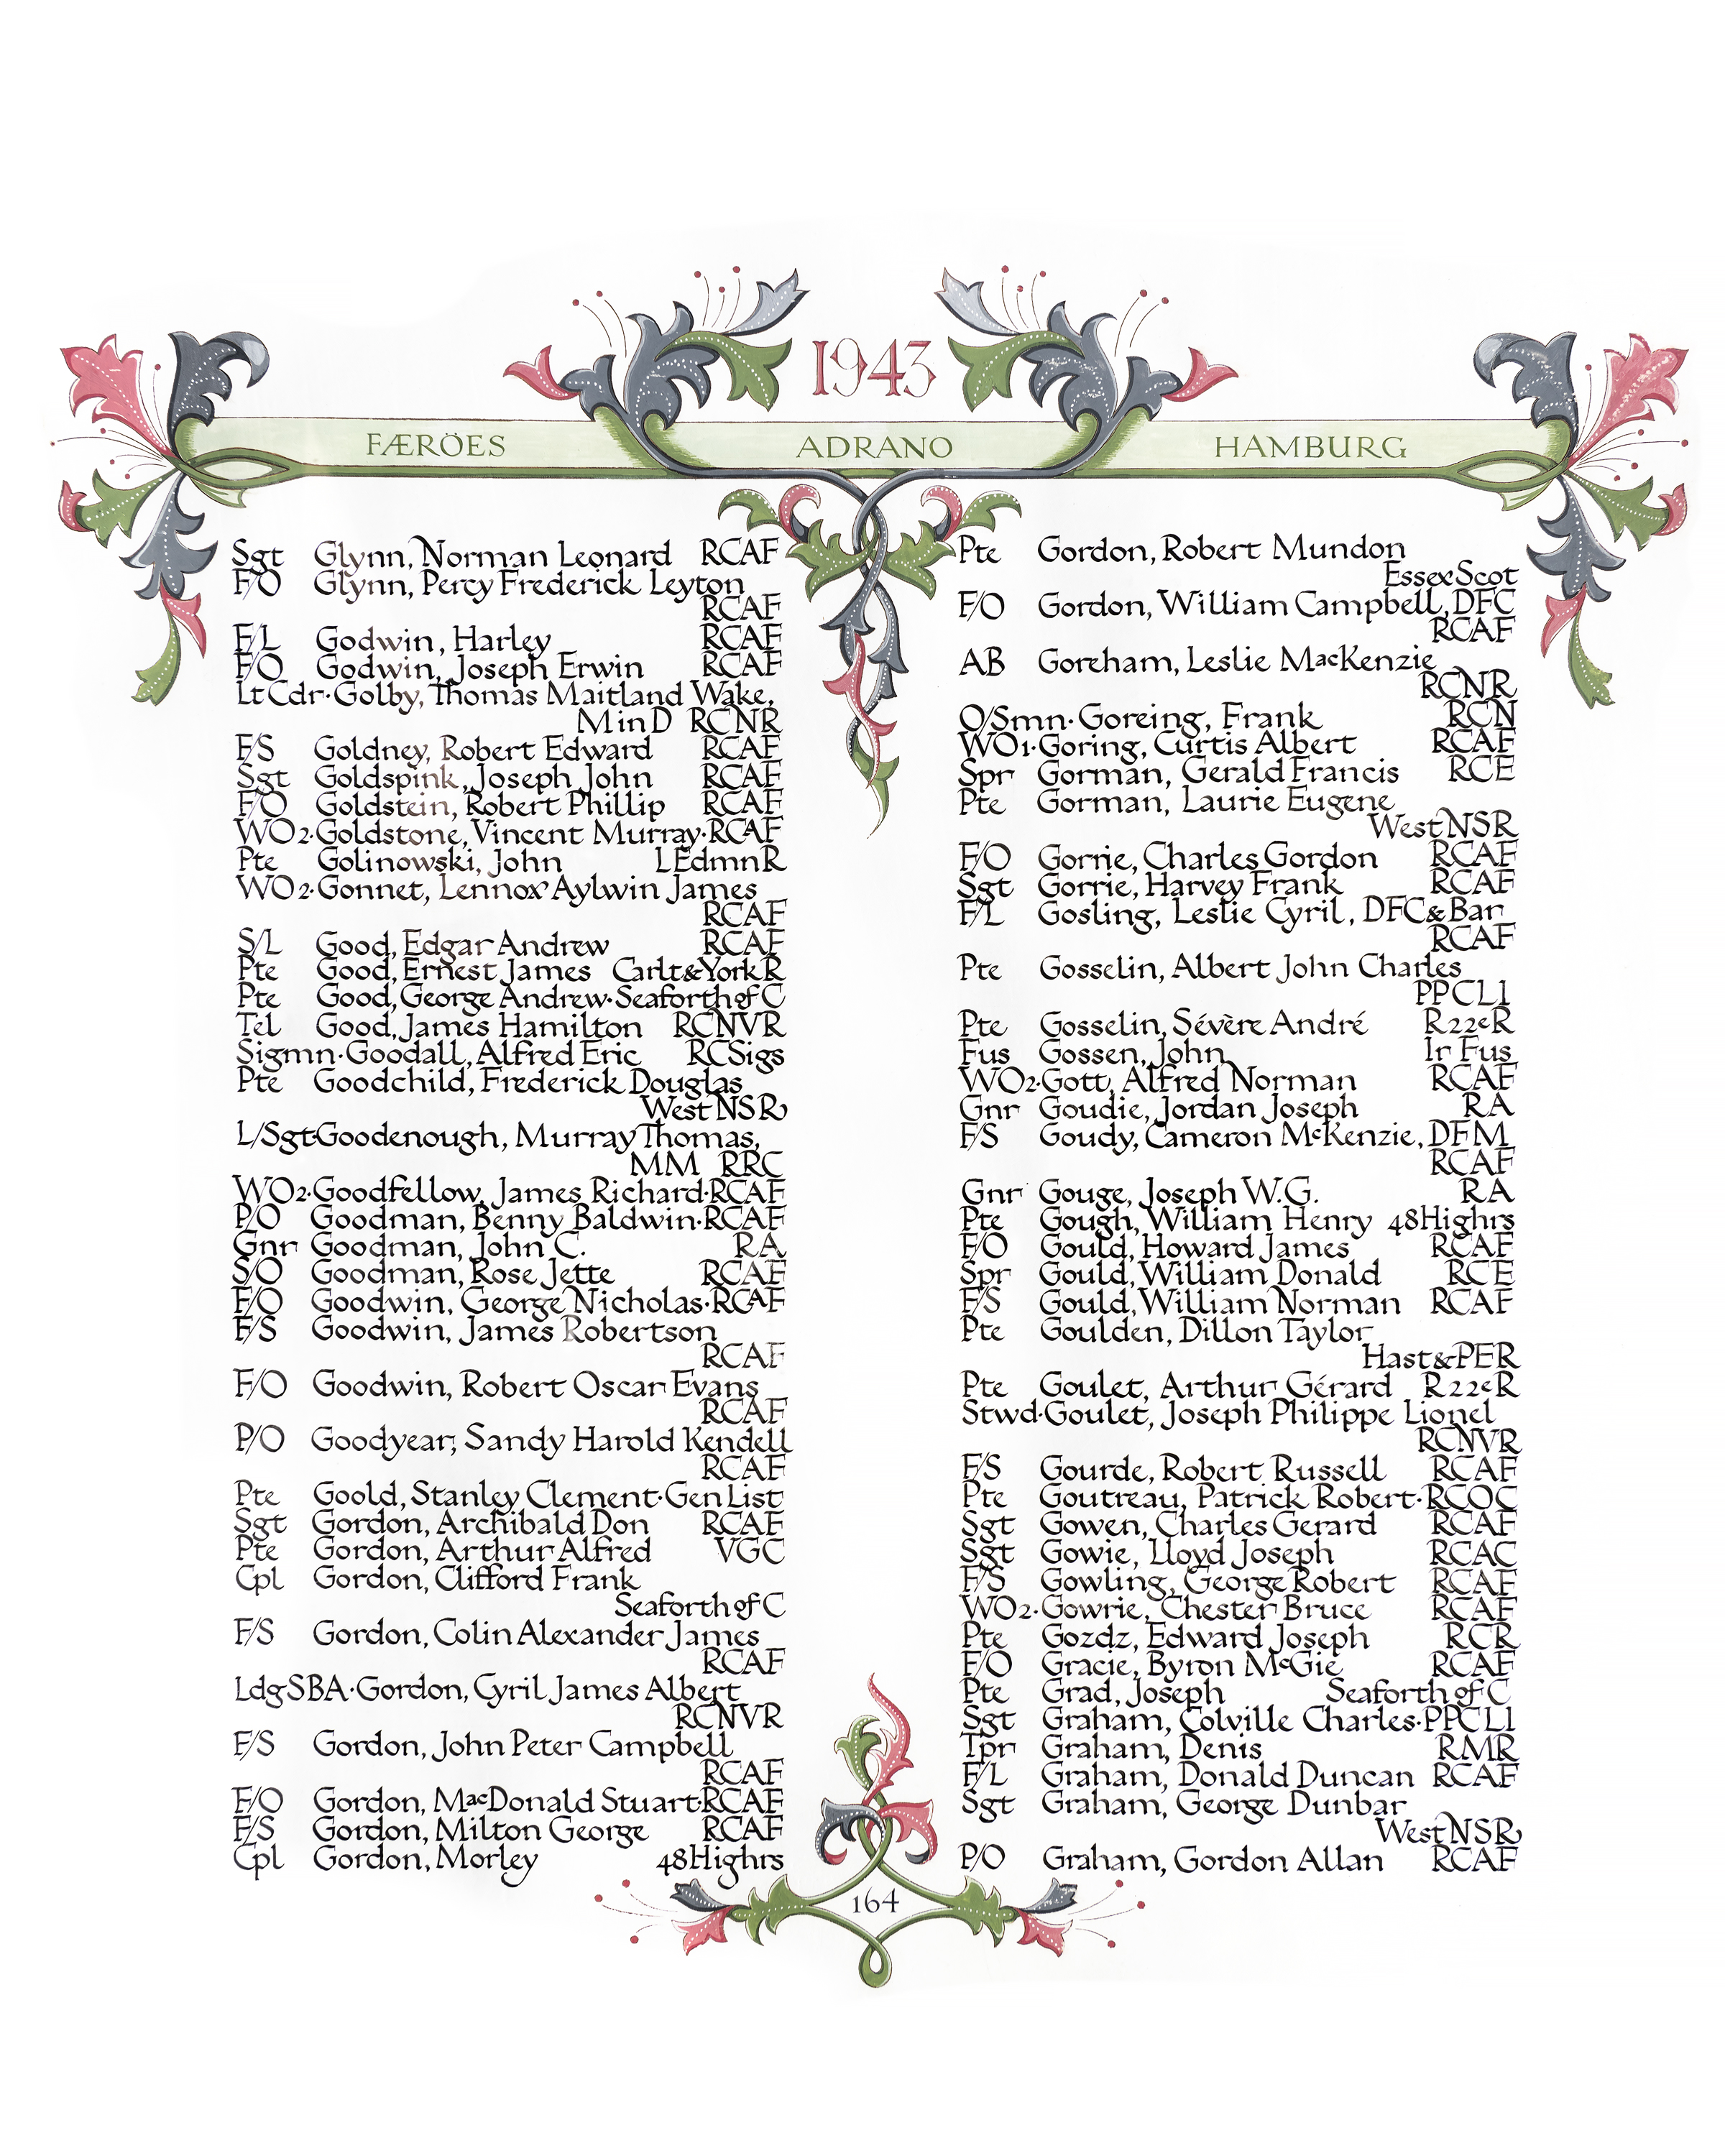 1943
FÆRÖES ADRANO HAMBURG
Sgt Glynn, Norman Leonard RCAF
F/O Glynn, Percy Frederick Leyton
RCAF
F/L Godwin, Harley RCAF
F/O Godwin, Joseph Erwin RCAF
Lt Cdr·Golby, Thomas Maitland Wake,
MinD RCNR
F/S Goldney, Robert Edward RCAF
Sgt Goldspink, Joseph John RCAF
F/O Goldstein, Robert Phillip RCAF
WO2·Goldstone, Vincent Murray·RCAF
Pte Golinowski, John LEdmnR
WO2·Gonnet, Lennox Aylwin James
RCAF
S/L Good, Edgar Andrew RCAF
Pte Good, Ernest James Carlt&YorkR
Pte Good, George Andrew·Seaforth of C
Tel Good, James Hamilton RCNVR
Sigmn·Goodall, Alfred Eric RCSigs
Pte Goodchild, Frederick Douglas
WestNSR
L/Sgt·Goodenough, Murray Thomas,
MM RRC
WO2·Goodfellow, James Richard·RCAF
P/O Goodman, Benny Baldwin·RCAF
Gnr Goodman, John C. RA
S/O Goodman, Rose Jette RCAF
F/O Goodwin, George Nicholas·RCAF
F/S Goodwin, James Robertson
RCAF
F/O Goodwin, Robert Oscar Evans
RCAF
P/O Goodyear, Sandy Harold Kendell
RCAF
Pte Goold, Stanley Clement·Gen List
Sgt Gordon, Archibald Don RCAF
Pte Gordon, Arthur Alfred VGC
Cpl Gordon, Clifford Frank
Seaforth of C
F/S Gordon, Colin Alexander James
RCAF
LdgSBA·Gordon, Cyril James Albert
RCNVR
F/S Gordon, John Peter Campbell
RCAF
F/O Gordon, MacDonald Stuart·RCAF
F/S Gordon, Milton George RCAF
Cpl Gordon, Morley 48Highrs
Pte Gordon, Robert Mundon
EssexScot
F/O Gordon, William Campbell, DFC
RCAF
AB Goreham, Leslie MacKenzie
RCNR
O/Smn·Goreing, Frank RCN
WO1·Goring, Curtis Albert RCAF
Spr Gorman, Gerald Francis RCE
Pte Gorman, Laurie Eugene
WestNSR
F/O Gorrie, Charles Gordon RCAF
Sgt Gorrie, Harvey Frank RCAF
F/L Gosling, Leslie Cyril, DFC&Bar
RCAF
Pte Gosselin, Albert John Charles
PPCLI
Pte Gosselin, Sévère André R22eR
Fus Gossen, John Ir Fus
WO2·Gott, Alfred Norman RCAF
Gnr Goudie, Jordan Joseph RA
F/S Goudy, Cameron McKenzie, DFM
RCAF
Gnr Gouge, Joseph W.G. RA
Pte Gough, William Henry 48Highrs
F/O Gould, Howard James RCAF
Spr Gould, William Donald RCE
F/S Gould, William Norman RCAF
Pte Goulden, Dillon Taylor
Hast&PER
Pte Goulet, Arthur Gérard R22eR
Stwd·Goulet, Joseph Philippe Lionel
RCNVR
F/S Gourde, Robert Russell RCAF
Pte Goutreau, Patrick Robert·RCOC
Sgt Gowen, Charles Gerard RCAF
Sgt Gowie, Lloyd Joseph RCAC
F/S Gowling, George Robert RCAF
WO2·Gowrie, Chester Bruce RCAF
Pte Gozdz, Edward Joseph RCR
F/O Gracie, Byron McGie RCAF
Pte Grad, Joseph Seaforth of C
Sgt Graham, Colville Charles·PPCLI
Tpr Graham, Denis RMR
F/L Graham, Donald Duncan RCAF
Sgt Graham, George Dunbar
WestNSR
P/O Graham, Gordon Allan RCAF
164